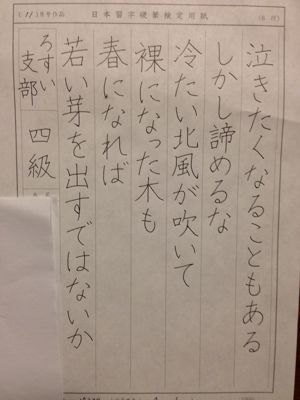 (11)月号作品
日本習字硬筆検定用紙
泣きたくなることもある
しかし諦めるな
冷たい北風が吹いて
裸になった木も
春になれば
若い芽を出すではないか
ろすい
支部
四級